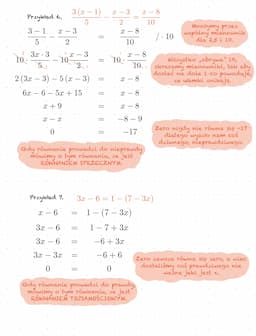 Przykład 6. 3(x − 1)/5 − (x − 3)/2 = (x − 8)/10
Mnożymy przez
wspólny mianownik
dla 2,5 i 10.
(3 − 1)/5 − (x − 3)/2 = (x − 8)/10 / · 10
10 · (3x · 3)/5 − 10 · (x − 3)/2 = 10 · (x − 8)/10
Wszystkie
10,
skracamy mianowniki, tak aby
dostać nie dało i co powoduje,
że ułamki znikają.
2 (3x − 3) − 5 (x − 3) = x − 8
6x − 6 − 5x + 15 = x − 8
x + 9 = x − 8
x − x = −8 − 9
0 = −17
Zero nigdy nie równa się −17
dlatego wyszło nam coś
dziwnego, nieprawdziwego.
Gdy równanie prowadzi do nieprawdy
mówimy o tym równaniu, że jest
RÓWNANIEM SPRZECZNYM.
Przykład 7. 3x − 6 = 1 − (7 − 3x)
x − 6 = 1 − (7 − 3x)
3x − 6 = 1 − 7 + 3x
3x − 6 = −6 + 3x
3x − 3x = −6 + 6
0 = 0
Zero zawsze równa się zero, a więc
dostaliśmy coś prawdziwego nie
ważne jaki jest x.
Gdy równanie prowadzi do prawdy
mówimy o tym równaniu, że jest
RÓWNANIEM TOŻSAMOŚCIOWYM.